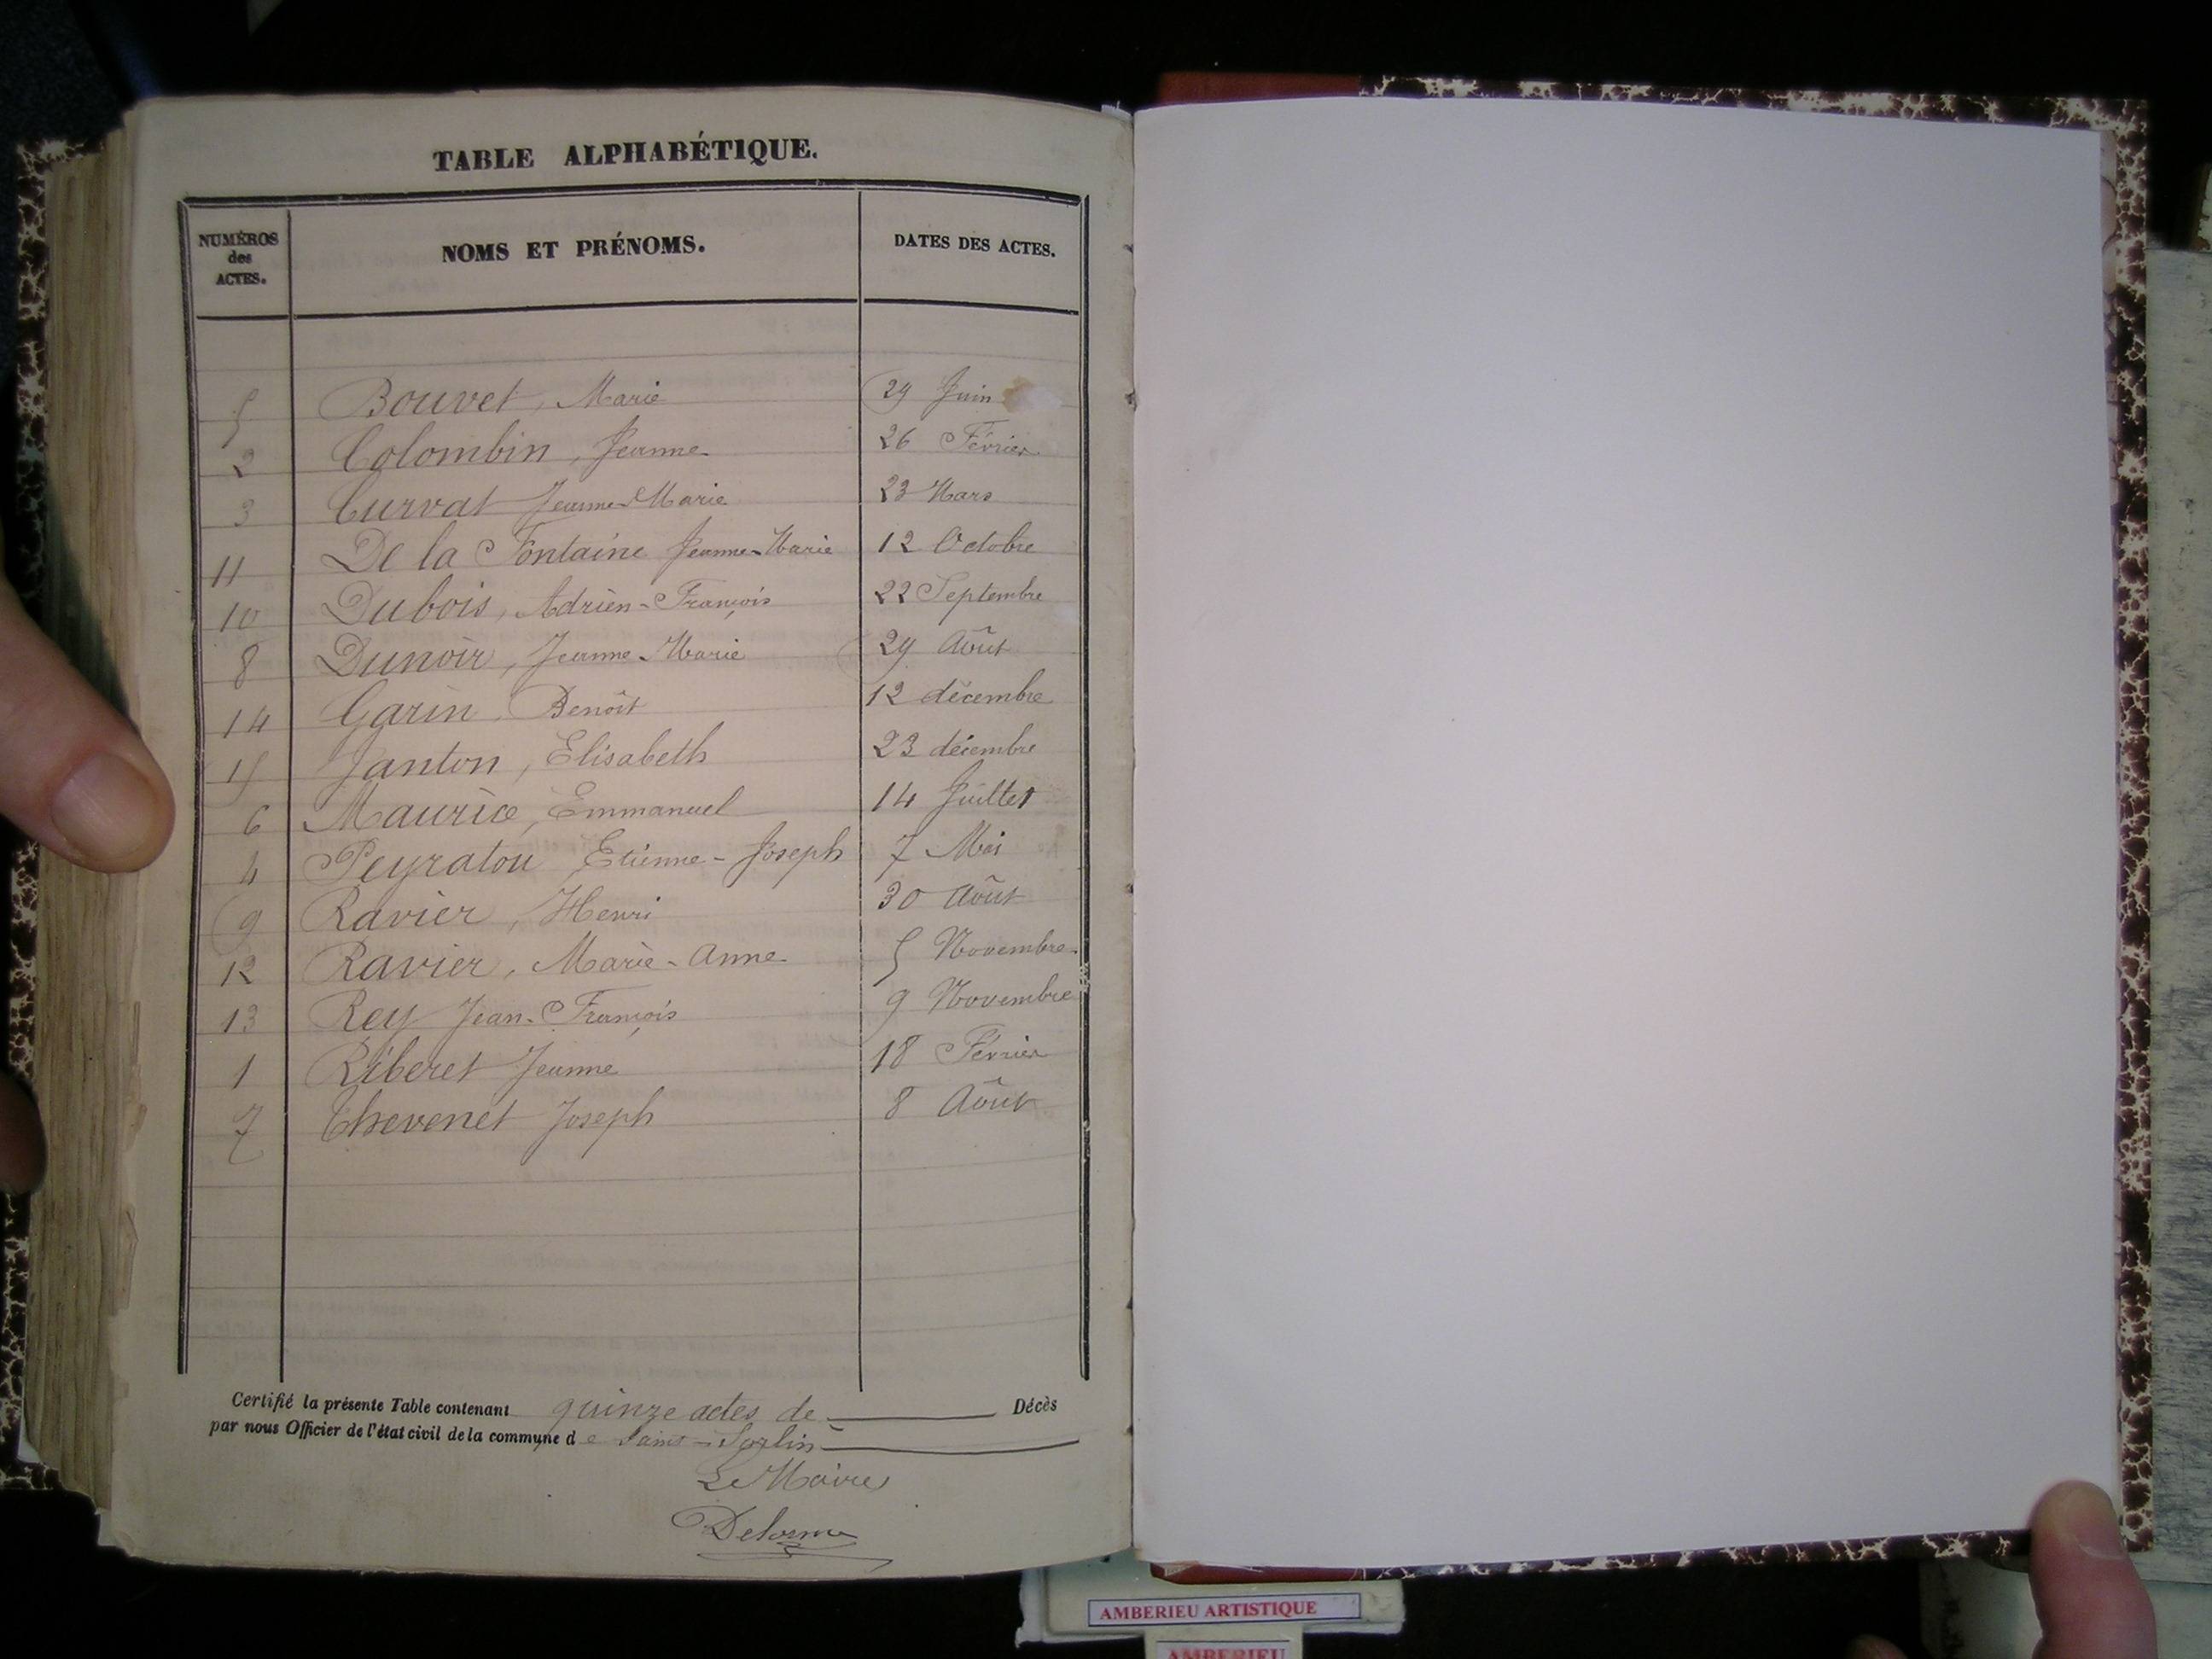 TABLE ALPHABÉTIQUE.
NUMÉROS des ACTES. NOMS ET PRÉNOMS. DATES DES ACTES.
5 Bouvet, Marie 29 Juin
2 Colombin, Jeanne 26 Février
3 Curvat Jeanne-Marie 23 Mars
11 De la Fontaine Jeanne-Marie 12 Octobre
10 Dubois, Adrien-François 22 Septembre
8 Dunoir, Jeanne-Marie 29 Août
14 Garin, Benoît 12 décembre
15 Janton, Elisabeth 23 décembre
6 Maurice, Emmanuel 14 Juillet
4 Peyratou Etienne-Joseph 7 Mai
9 Ravier, Henri 30 Août
12 Ravier, Marie-Anne 5 Novembre
13 Rey Jean-François 9 Novembre
1 Riberet Jeanne 18 Février
7 Chevenet Joseph 8 Août
Certifié la présente Table contenant quinze actes de Décès
par nous Officier de l'état civil de la commune de Saint-Sorlin
Le Maire
Delorme
AMBERIEU ARTISTIQUE
AMBERIEU